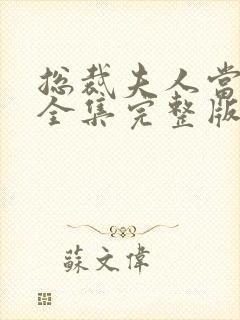 总裁夫人当
全集完整版
蘇文偉